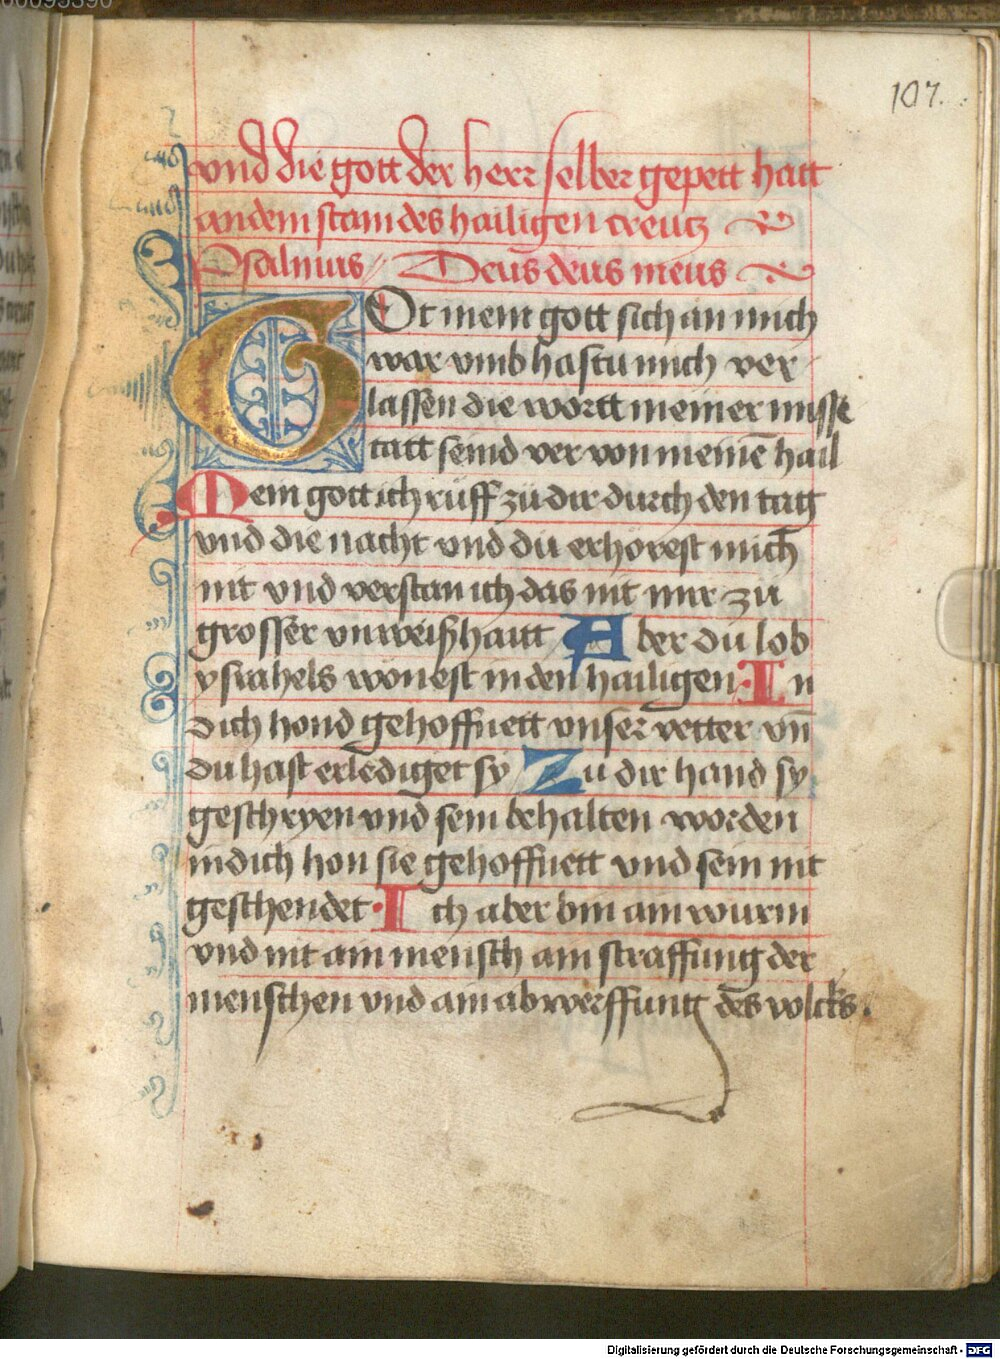 107.
vnd die gott der herr selber gepett hatt
an dem stam des hailigen creutz
Psalmus Deus deus meus
GOt mein gott sich an mich
war vmb hastu mich ver
lassen die wortt meiner misse
tatt seind ver von meinē hail
Mein gott ich rüff zü dir durch den tag
vnd die nacht vnd dü erhorest mich
nit vnd verstan ich das nit mir zü
grosser vnweißhaitt Aber dü lob
ysrahels wonest in den hailigen In
dich hond gehoffnett vnser vetter vn̄
du hast erlediget sy Zu dir hand sy
geschryen vnd sein behalten worden
in dich hon sie gehoffnett vnd sein nit
geschendet Ich aber bin ain wurm
vnd nit ain mensch ain straffung der
menschen vnd ain abwerffung des volcks.
Digitalisierung gefördert durch die Deutsche Forschungsgemeinschaft - DFG